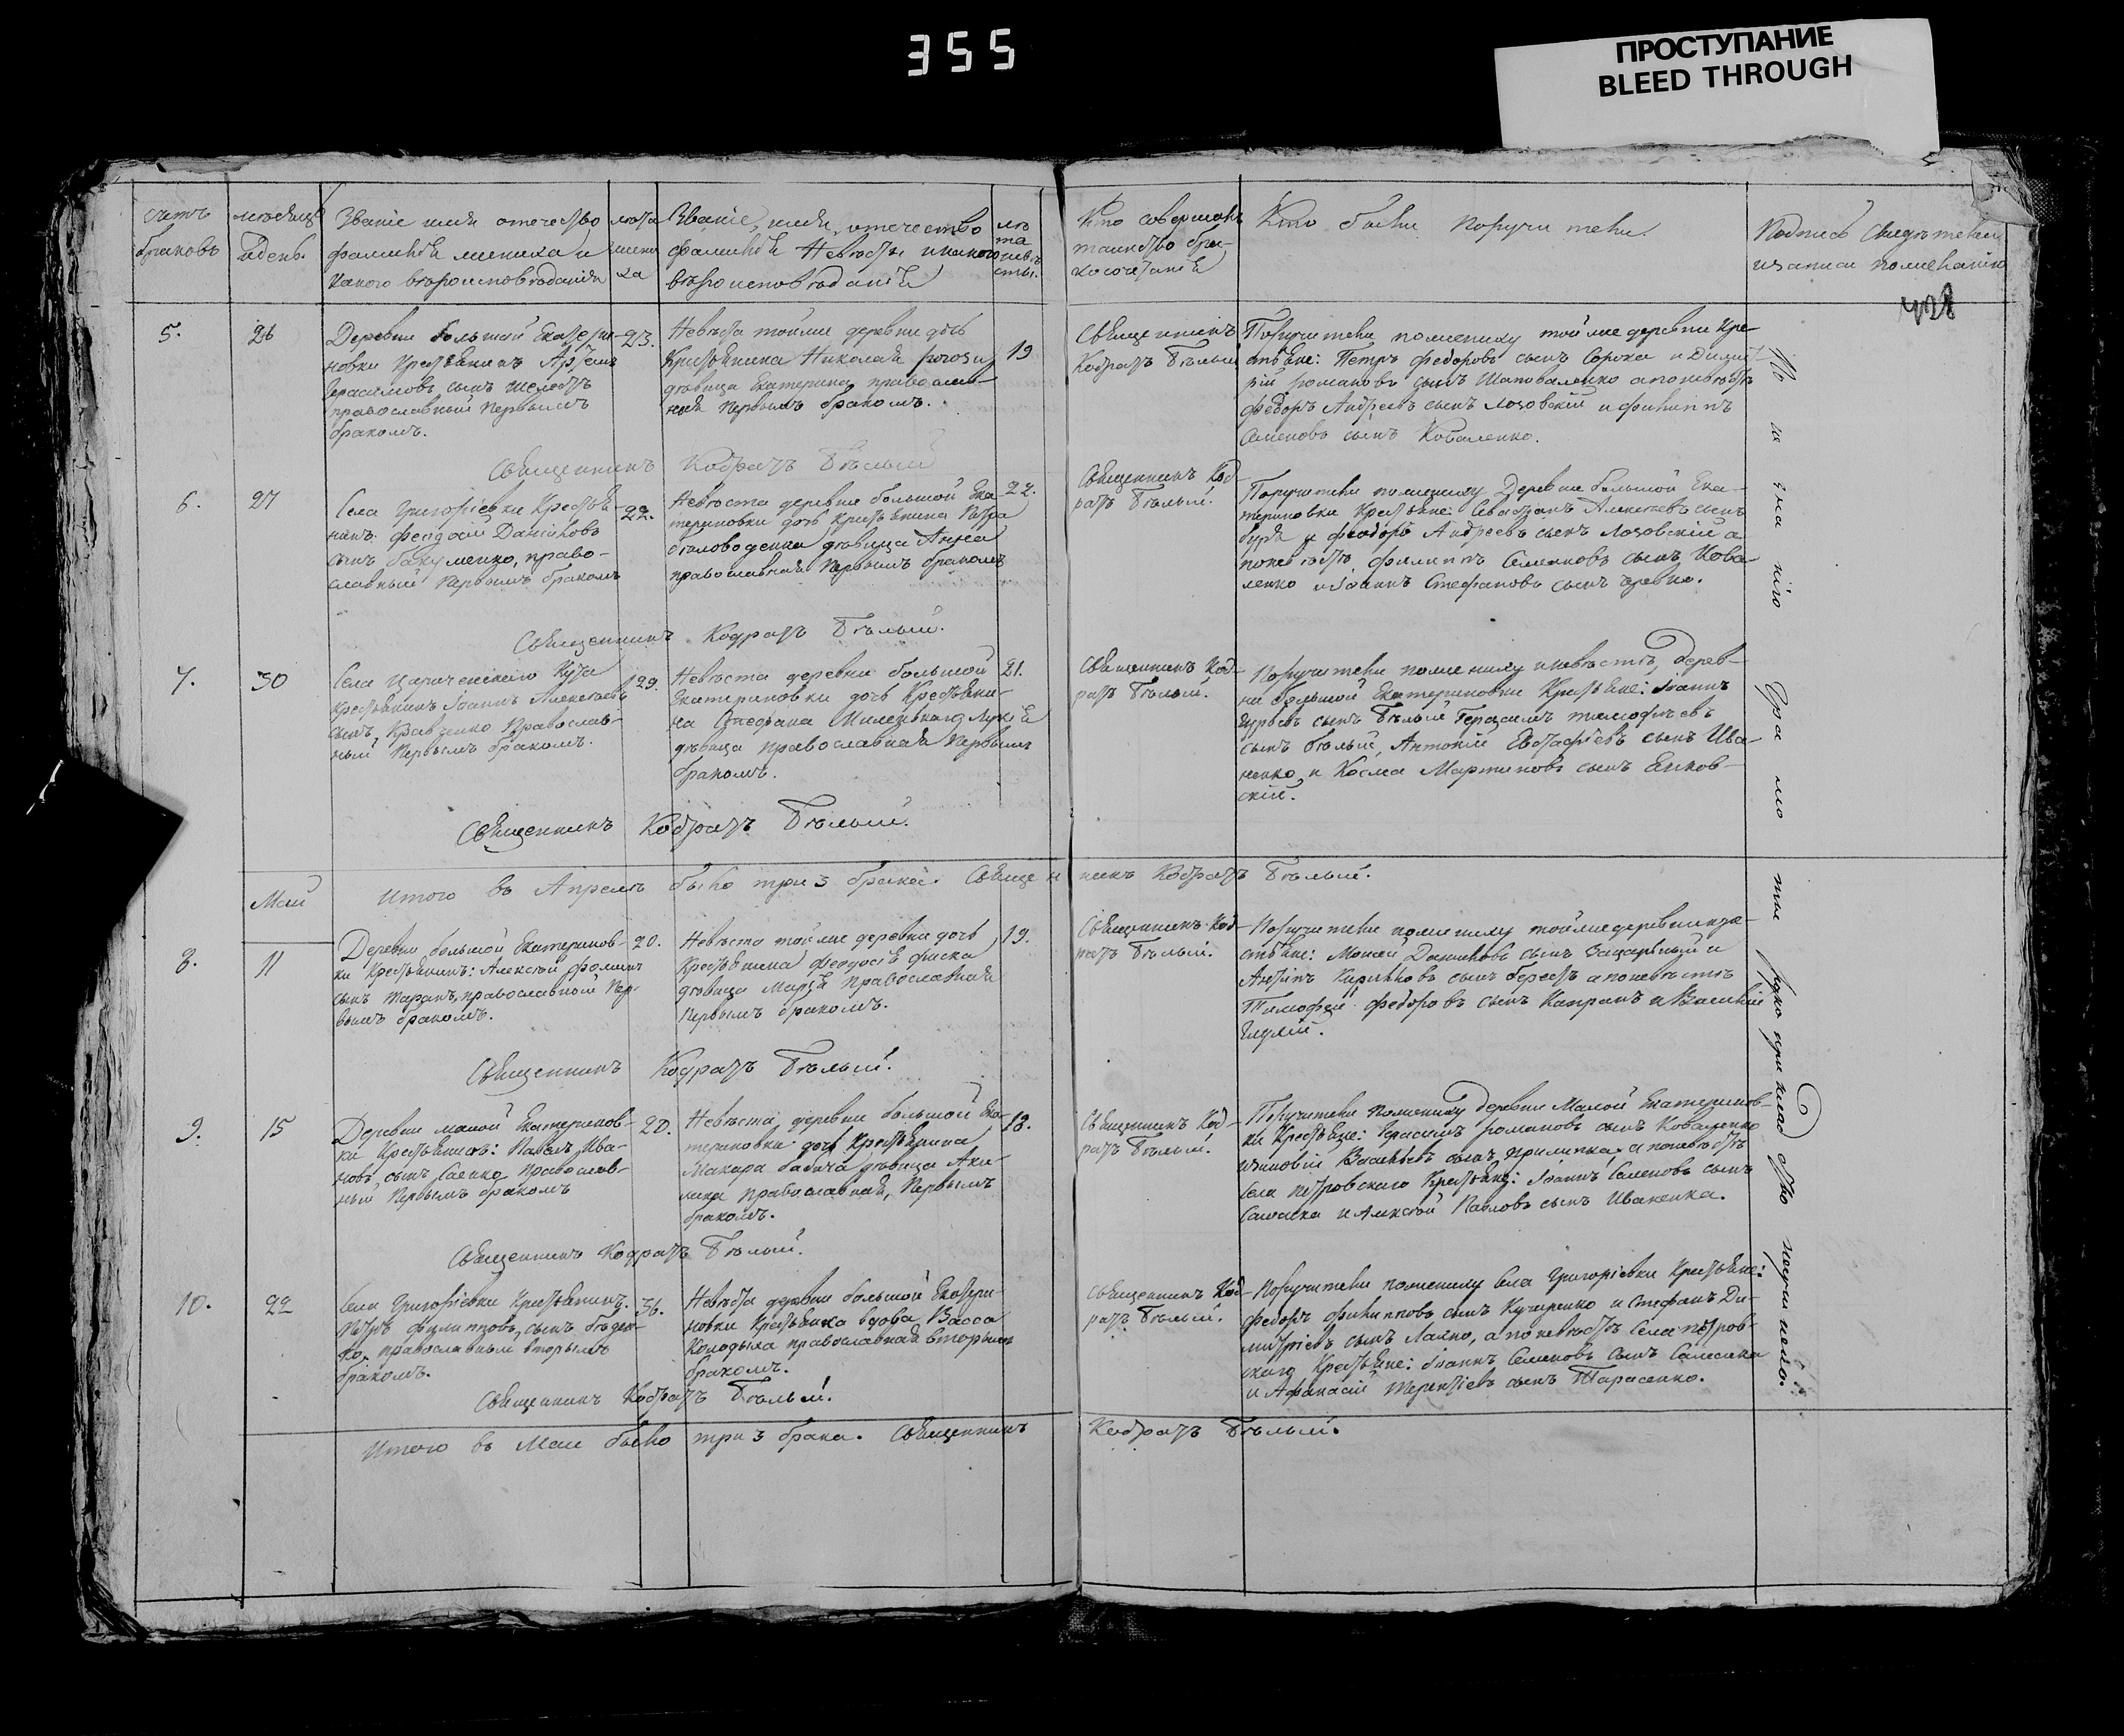 355
ПРОСТУПАНИЕ
BLEED THROUGH
счетъ браковъ
мѣсяцъ и день.
Званіе имя отечество
фамилія жениха и
какого вѣроисповѣданія
лѣта жениха
Званіе, имя, отечество
фамилія Невѣсты и какого
вѣроисповѣданія
лѣта невѣсты.
Кто совершалъ
таинство бра-
косочетанія
Кто были поручители.
Подпись свидѣтелей
428
5.
26
Деревни большой Екатери-
новки Крестьянинъ Артемъ
Герасимовъ сынъ Шелестъ
православный первымъ
бракомъ.
23.
Невѣста тойже деревни дочь
Крестьянина Николая рогозы
дѣвица Екатерина православ-
ная первымъ бракомъ.
19
Священникъ
Кодратъ Бѣлый
Поручители по жениху тойже деревни Кре-
стьяне: Петръ Федоровъ сынъ Сорока и Димит-
рій романовъ сынъ Шаповаленко а по невѣстѣ
федоръ Андреевъ сынъ Лозовскій и филиппъ
Семеновъ сынъ Коваленко.
Священникъ Кодратъ Бѣлый
6.
27
Села Григоріевки Крестья-
нинъ: феодосій Даниловъ
сынъ Бакуменко, право-
славный первымъ бракомъ
22.
Невѣста деревни большой Ека-
териновки дочь Крестьянина Петра
бѣловоденка дѣвица Анна
православная первымъ бракомъ
22.
Священникъ Код-
ратъ Бѣлый.
Поручители по жениху Деревни большой Ека-
териновки Крестьяне: Севастіанъ Алексѣевъ сынъ
буря и феодоръ Андреевъ сынъ Лозовскій а
по невѣстѣ филиппъ Семеновъ сынъ Кова-
ленко и Іоаннъ Стефановъ сынъ
Священникъ Кодратъ Бѣлый.
7.
30
Села Кута
Крестьянинъ Іоаннъ Алексѣевъ
сынъ, Кравченко Православ-
ный Первымъ бракомъ.
29.
Невѣста деревни большой
Екатериновки дочь Крестьяни-
на Стефана
дѣвица православная Первымъ
бракомъ.
21.
Священникъ Код-
ратъ Бѣлый.
Поручители по жениху и невѣстѣ, дерев-
ни большой Екатериновки Крестьяне: Іоаннъ
Гурьевъ сынъ Бѣлый Герасимъ тимофѣевъ
сынъ бѣлый, Антоній Евстафіевъ сынъ Ива-
ненко, и Косма Мартиновъ сынъ
скій.
Священникъ Кодратъ Бѣлый.
Итого въ Апрелѣ было три 3 брака. Священникъ Кодратъ Бѣлый.
Май
8.
11
Деревни большой Екатеринов-
ки Крестьянинъ: Алексѣй фоминъ
сынъ таранъ, православный Пер-
вымъ бракомъ.
20.
Невѣста тойже деревни дочь
Крестьянина феодосія
дѣвица Марфа Православная
Первымъ бракомъ.
19.
Священникъ Код-
ратъ Бѣлый.
Поручители по жениху тойже деревни кре-
стьяне: Моисей Даниловъ сынъ и
Антипъ Кириловъ сынъ берестъ а по невѣстѣ
Тимофей федоровъ сынъ Капранъ и Василій
Священникъ Кодратъ Бѣлый.
9.
15
Деревни малой Екатеринов-
ки Крестьянинъ: Павелъ Ива-
новъ, сынъ Саенко православ-
ный Первымъ бракомъ
20.
Невѣста деревни большой Ека-
териновки дочь Крестьянина
Макара бабича дѣвица Аки-
лина православная, Первымъ
бракомъ.
18.
Священникъ Код-
ратъ Бѣлый.
Поручители по жениху деревни Малой Екатеринов-
ки Крестьяне: Герасимъ романовъ сынъ Коваленко
и зиновій Васильевъ сынъ прилипка, а по невѣстѣ
села петровского Крестьяне: Іоаннъ Семеновъ сынъ
и Алексѣй Павловъ сынъ Иваненка.
Священникъ Кодратъ Бѣлый.
10.
22
Села Григоріевки Крестьянинъ
Петръ филипповъ, сынъ
ко, православный вторымъ
бракомъ.
36.
Невѣста деревни большой Екатери-
новки Крестьянка вдова Васса
православная вторымъ
бракомъ.
Священникъ Код-
ратъ Бѣлый.
Поручители по жениху Села Григоріевки Крестьяне:
федоръ филипповъ сынъ Кучеренко и стефанъ Ди-
митріевъ сынъ Лалко, а по невѣстѣ Села петров-
ского Крестьяне: Іоаннъ Семеновъ сынъ
и Афанасій Терентіевъ сынъ Тарасенко.
Священникъ Кодратъ Бѣлый.
Итого въ Маи было три 3 брака. Священникъ Кодратъ Бѣлый.